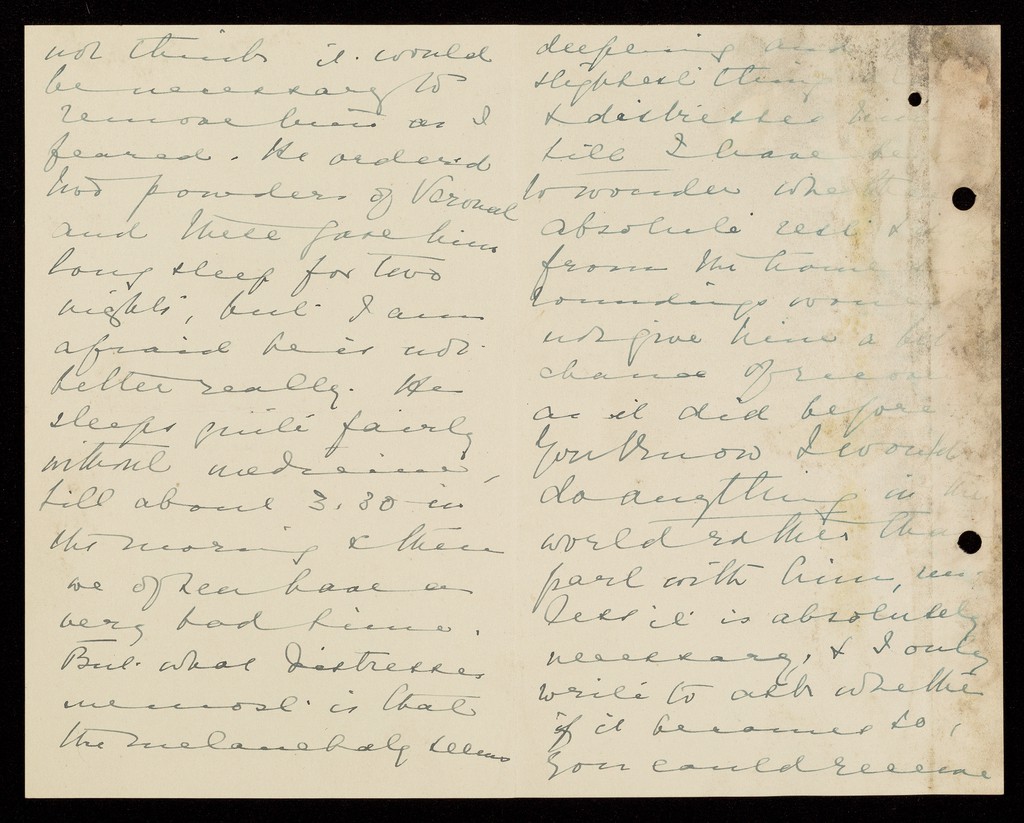 not think it would
be necessary to
remove him as I
feared. He ordered
two powders of Veronal
and these gave him
long sleep for two
nights, but I am
afraid he is not
better really. He
sleeps quite fairly
without medicine,
till about 3.30 in
the morning & then
we often have a
very bad time.
But what distresses
me most is that
the melancholy seems
deepening and
slightest thing
& distresses him
till I have
to wonder whether
absolute rest &
from the home
roundings would
not give him a
chance of
as it did before
You know I would
do anything in the
world rather than
part with him, un-
less it is absolutely
necessary, & I only
write to ask whether
if it becomes so,
you could receive